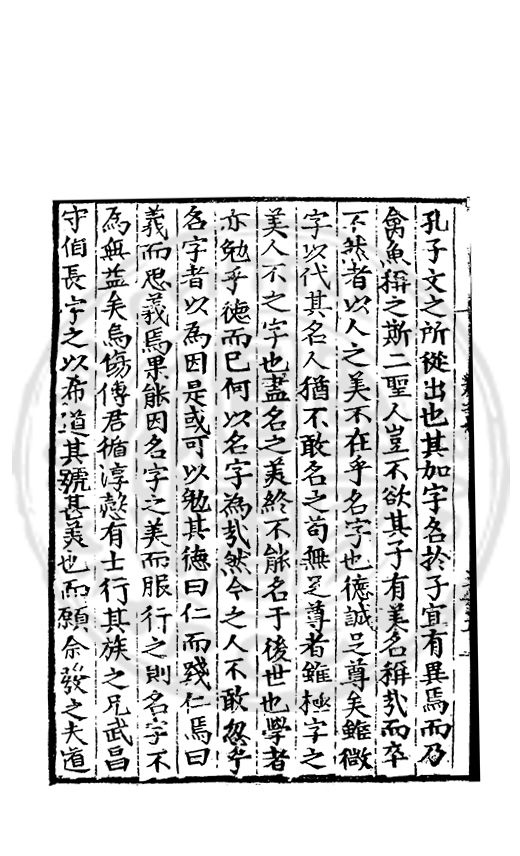 孔子文之所從出也其加字名於子宜有異焉而乃
禽魚稱之斯二聖人豈不欲其子有美名稱㢤而卒
不然者以人之美不在乎名字也德誠足尊矣雖微
字以代其名人猶不敢名之苟無足尊者雖極字之
美人不之字也盖名之美終不能名于後世也學者
亦勉乎德而已何以名字為㢤然今之人不敢忽乎
名字者以為因是或可以勉其德曰仁而踐仁焉曰
義而思義焉果能因名字之美而服行之則名字不
為無益矣烏傷傅君循淳愨有士行其族之兄武昌
守伯長字之以希道其號甚美也而願余發之夫道